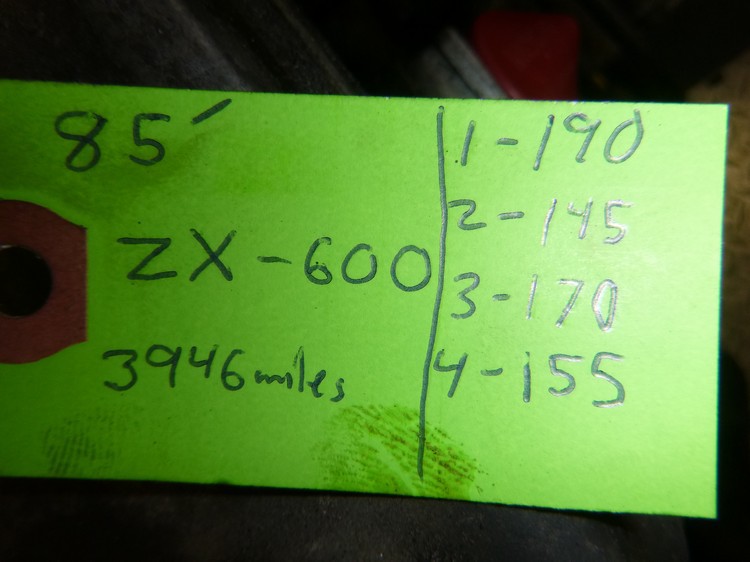 85'
ZX-600
3946 miles
1-190
2-145
3-170
4-155